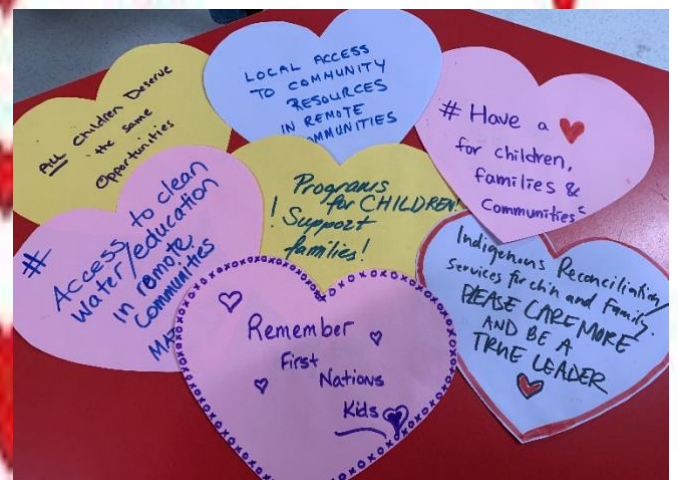 ALL Children Deserve
the same
Opportunities
LOCAL ACCESS
TO COMMUNITY
RESOURCES
IN REMOTE
MMUNITIES
# Have a
for children,
families &
Communities
# Access to clean
Water/education
in remote
Communities
Programs
for CHILDREN!
! Support
families!
Indigenous Reconciliation
Services for chn and Family.
PLEASE CARE MORE
AND BE A
TRUE LEADER
Remember
First
Nations
Kids